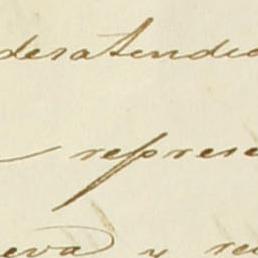 desatendid
represe
eva y re